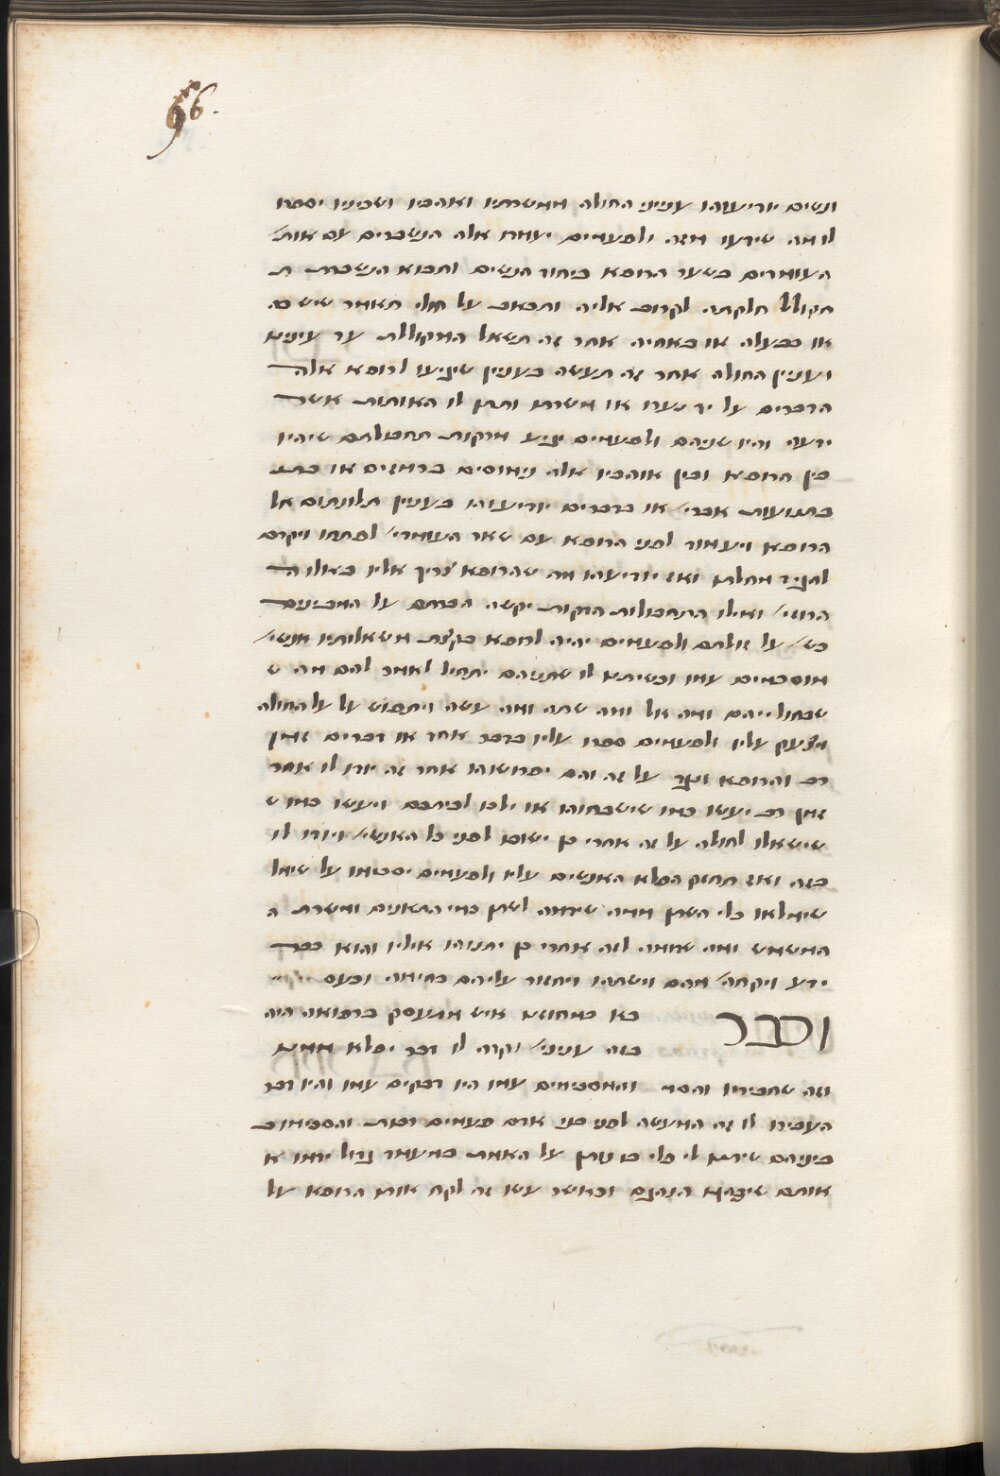 66.
ונשים יודיעוהו עניני החולה ממשרתיו ואהביו ושכיניו יספרו
לו מה שידעו מזה ולפעמים יעמדו אלה הנשכרים עם אות׳
העומדים בשער הרופא ביחוד הנשים ותבוא הנשכרת
לקרוב אליה ותכאב על חולי תאמר שיש
או בבעלה או באחיה אחר זה תשאל
ועניין החולה אחר זה תעשה בעניין שיגיעו לרופא אלה
הדברים על יד נערו או משרתו ותתן לו האותות אשר
ידעה והיו שניהם ולפעמים יגיע מדקות תחבולתם שיהיו
בין הרופא ובין אוהביו אלה נימוסים ברמזים או
בתנועות אברי׳ או בדברים יודיעוהו בעניין תלונתם אל
הרופא ויעמוד לפני הרופא עם שאר העומדי׳ לפתחו ויקדם
להגיד מחלתו ואז יודיעהו מה שהרופא צריך אליו
ואילו התחבולות הדקות יקשה הכרתם על המבינים
כש׳ על זולתם ולפעמים יהיה לרופא בקצת משאלותיו אנשי׳
מוסכמים עמו וכשיתנו לו שתניהם יתחיל לאמר להם מה ש
שבחולייהם ומה אכל ומה שתה ומה עשה ויתפוש על החולה
ויצעק עליו ולפעמים ספרו עליו בדבר אחד או דברים זמן
רב והרופא על זה והם יפרשוהו אחר זה יודו לו אחר
זמן רב יעשו כמו שישבחוהו או ילכו לביתם ויעשו כמו ש
שישאלו לחולה על זה אחרי כן ישובו לפני כל האנשי׳ ויודו לו
בזה ואז תחזק הפלא האנשים עליו ולפעמים יסכימו על
שימלאו כלי השתן ממה שידמה לשתן כמי התאנים ומשרת ה
המשמש ומה שדומה לזה אחרי כן יתנוהו אליו והוא כבר
ידע ויקחה׳ מהם וישתהו ויחזור עליהם בחימה וכעס
ודבר
בא במחוזנו איש מתעסק ברפואה היה
בזה ענייני׳ וקרה לו דבר יפלא ממנו
וזה שחביריו והמסכימים עמו היו דבקים עמו והיו דבר
העבירו לו זה המעשה לפני בני אדם פעמים רבות והסכימו
ביניהם שיתן לי כלי בו שתן על האמת במעמד גדול ידמו א
אותם שיצחקו וכאשר עשו זה לקח אותו הרופא על